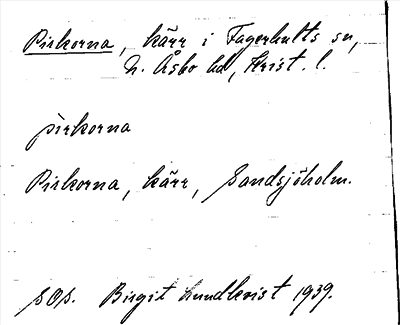 Pirkorna, kärr i Fagerhults sn,
N. Åsbo hd, Krist. l.
pirkorna
Pirkorna, kärr, Sandsjöholm.
Birgit Lundkvist 1939.